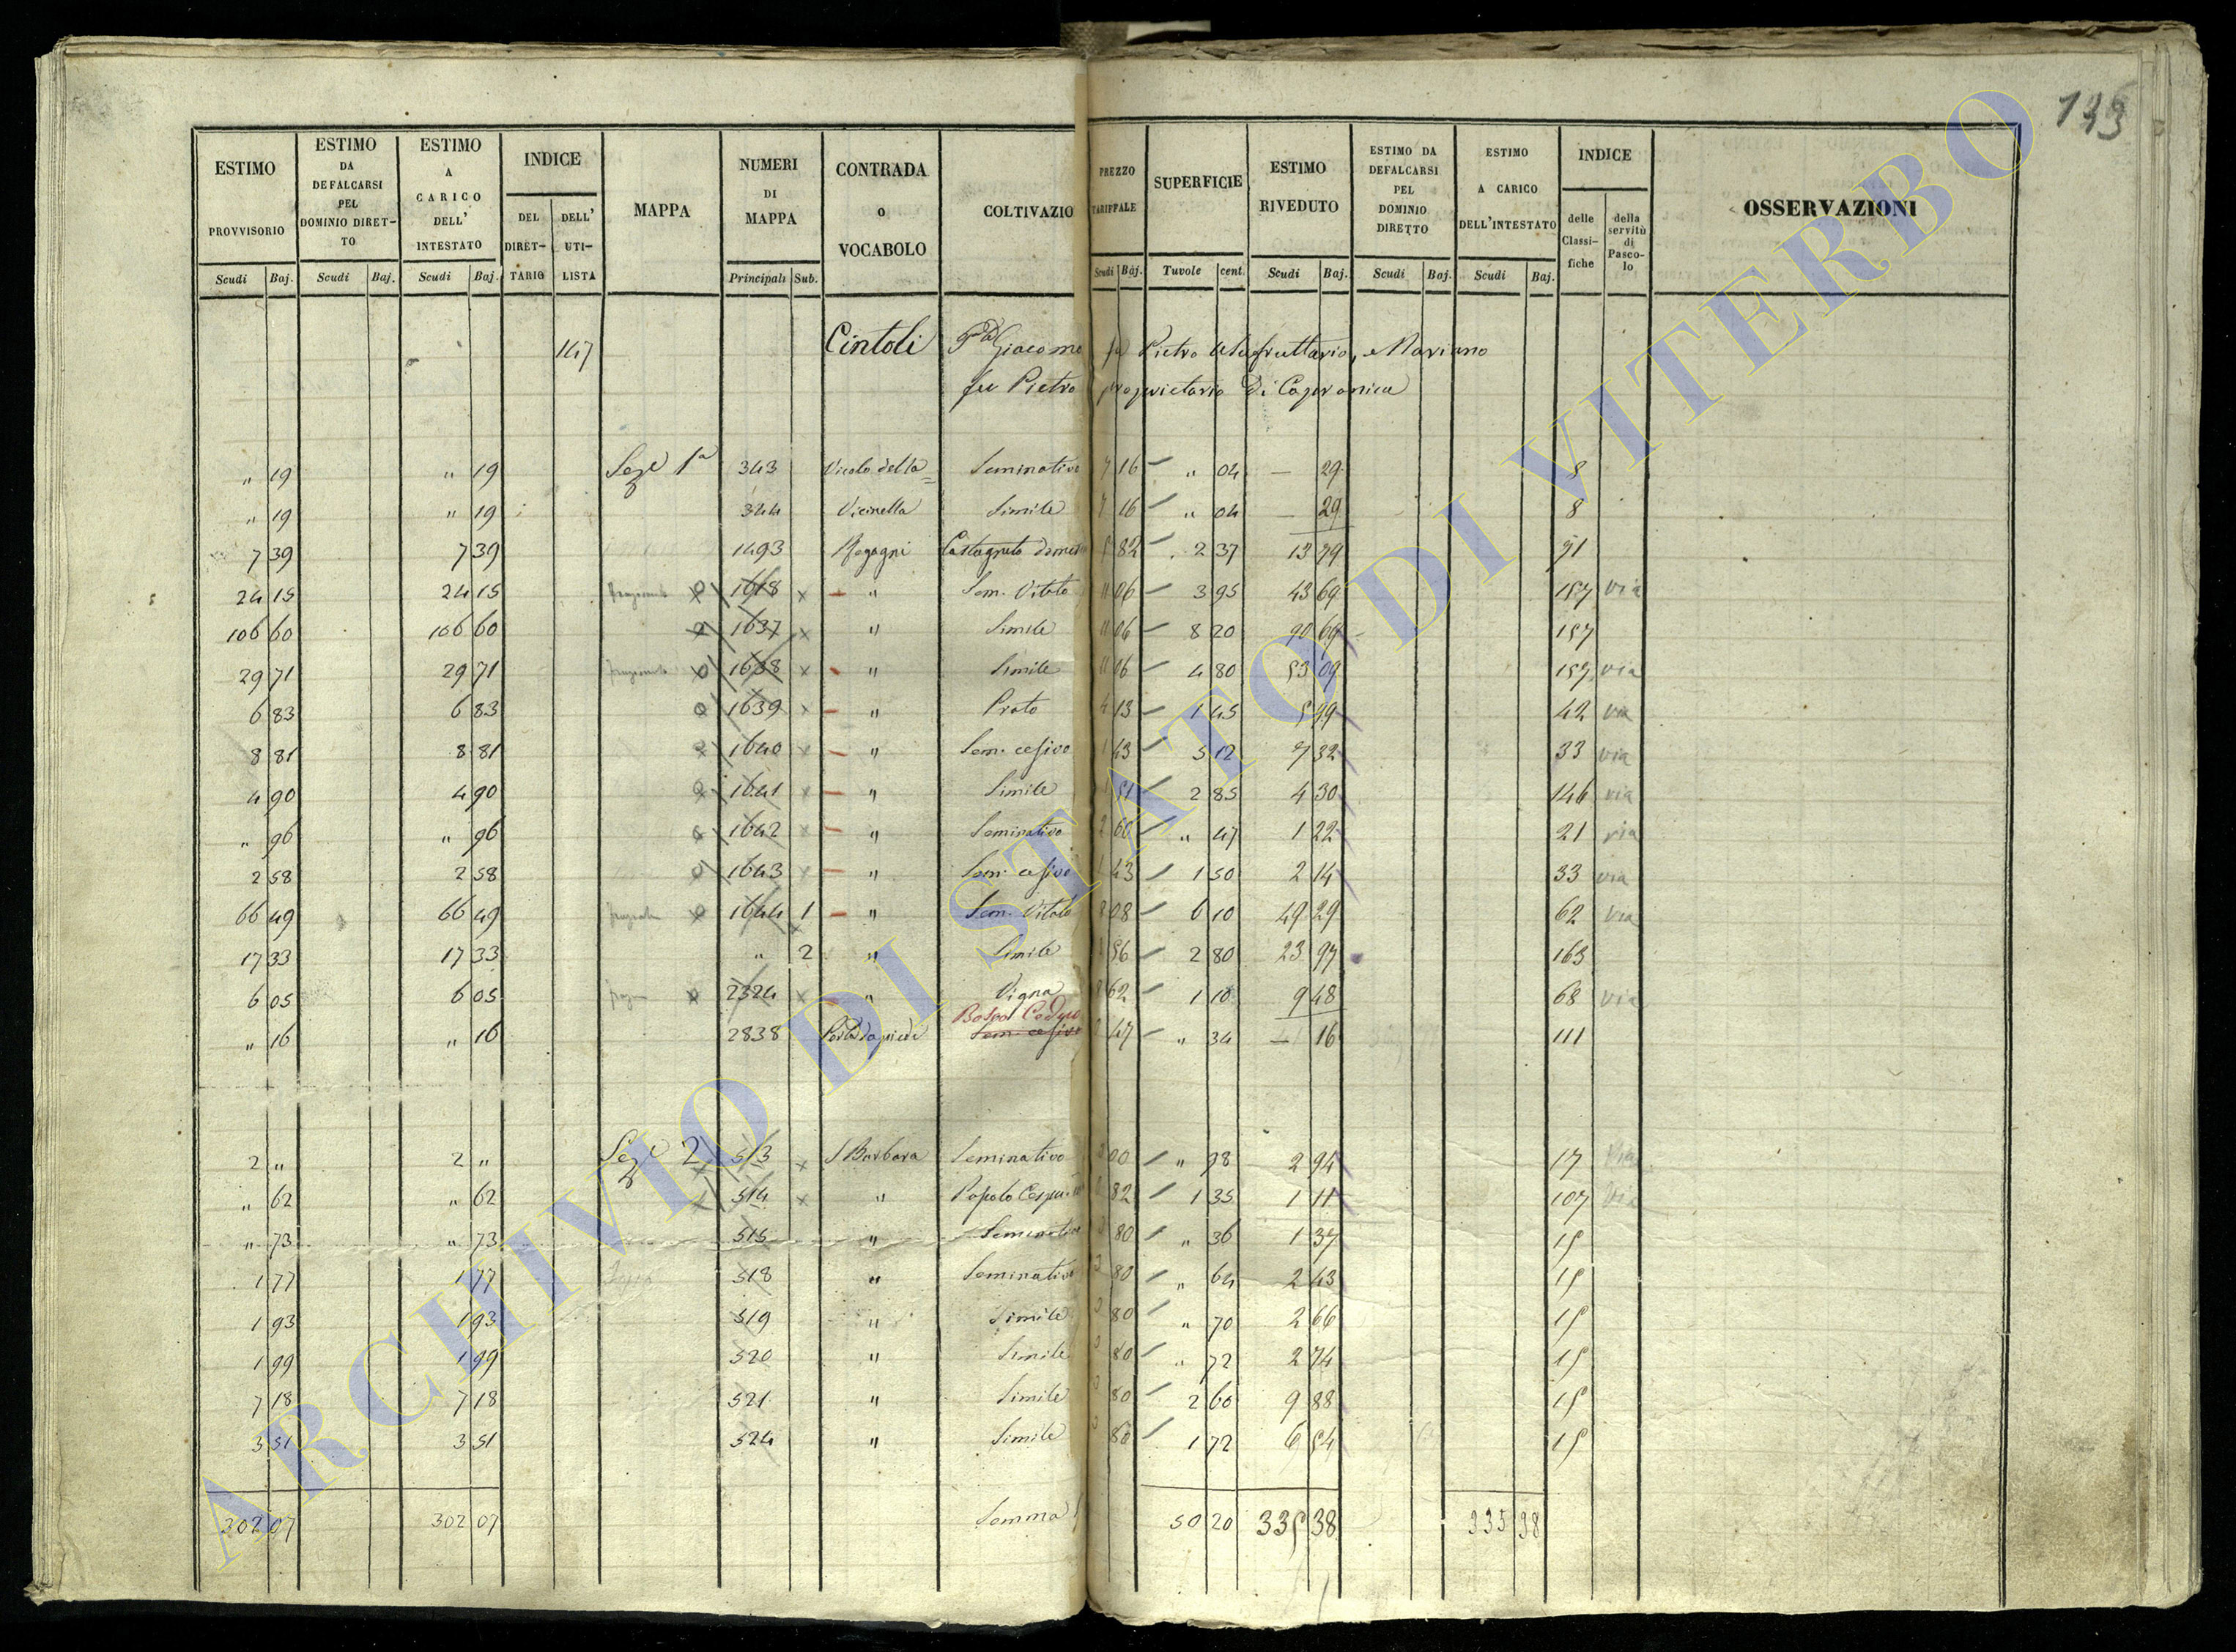 133
ESTIMO PROVVISORIO Scudi Baj. ESTIMO DA DEFALCARSI PEL DOMINIO DIRETTO Scudi Baj. ESTIMO A CARICO DELL' INTESTATO Scudi Baj. INDICE DEL DIRETTARIO DELL' UTILISTA MAPPA NUMERI DI MAPPA Principali Sub. CONTRADA O VOCABOLO COLTIVAZIO PREZZO TARIFFALE Scudi Baj. SUPERFICIE Tavole cent. ESTIMO RIVEDUTO Scudi Baj. ESTIMO DA DEFALCARSI PEL DOMINIO DIRETTO Scudi Baj. ESTIMO A CARICO DELL'INTESTATO Scudi Baj. INDICE delle Classifiche della servitù di Pascolo OSSERVAZIONI
147 Cintoli Giacomo fu Pietro Usufruttario, e Mariano
fu Pietro proprietario Di Capranica
" 19 " 19 Seze 1a 343 Vicolo della Seminativo 7 16 " 04 — 29 8
" 19 " 19 344 Vicinella Simile 7 16 " 04 — 29 8
7 39 7 39 1493 Castagneto domes 5 82 2 37 13 79 51
24 15 24 15 1618 " Sem. Vitato 11 06 3 95 43 69 157 via
106 60 106 60 1637 " Simile 11 06 8 20 90 69 157
29 71 29 71 1638 " Simile 11 06 4 80 53 09 157 via
6 83 6 83 1639 " Prato 4 13 1 45 5 99 42 via
8 81 8 81 1640 " Sem. cesivo 1 43 5 12 7 32 33 via
4 90 4 90 1641 " Simile 1 51 2 85 4 30 146 via
" 96 " 96 1642 " Seminativo 2 60 " 47 1 22 21 via
2 58 2 58 1643 " Sem. cesivo 1 43 1 50 2 14 33 via
66 49 66 49 1644 1 " Sem. Vitato 8 08 6 10 49 29 62 via
17 33 17 33 " 2 " Simile 8 56 2 80 23 97 163
6 05 6 05 2324 " Vigna 8 62 1 10 9 48 68 via
Bosco Ceduo
" 16 " 16 2838 Sem. cesivo 47 " 34 — 16 111
2 " 2 " Seze 2 513 S Barbara Seminativo 3 00 " 98 2 94 17 Via
" 62 " 62 514 " 82 1 35 1 11 107 Via
" 73 " 73 515 " Seminativo 3 80 " 36 1 37 15
1 77 1 77 518 " Seminativo 3 80 " 64 2 43 15
1 93 1 93 519 " Simile 3 80 " 70 2 66 15
1 99 1 99 520 " Simile 3 80 " 72 2 74 15
7 18 7 18 521 " Simile 3 80 2 60 9 88 15
3 51 3 51 524 " Simile 3 80 1 72 6 54 15
302 07 302 07 Somma 50 20 335 38 335 38
ARCHIVIO DI STATO DI VITERBO